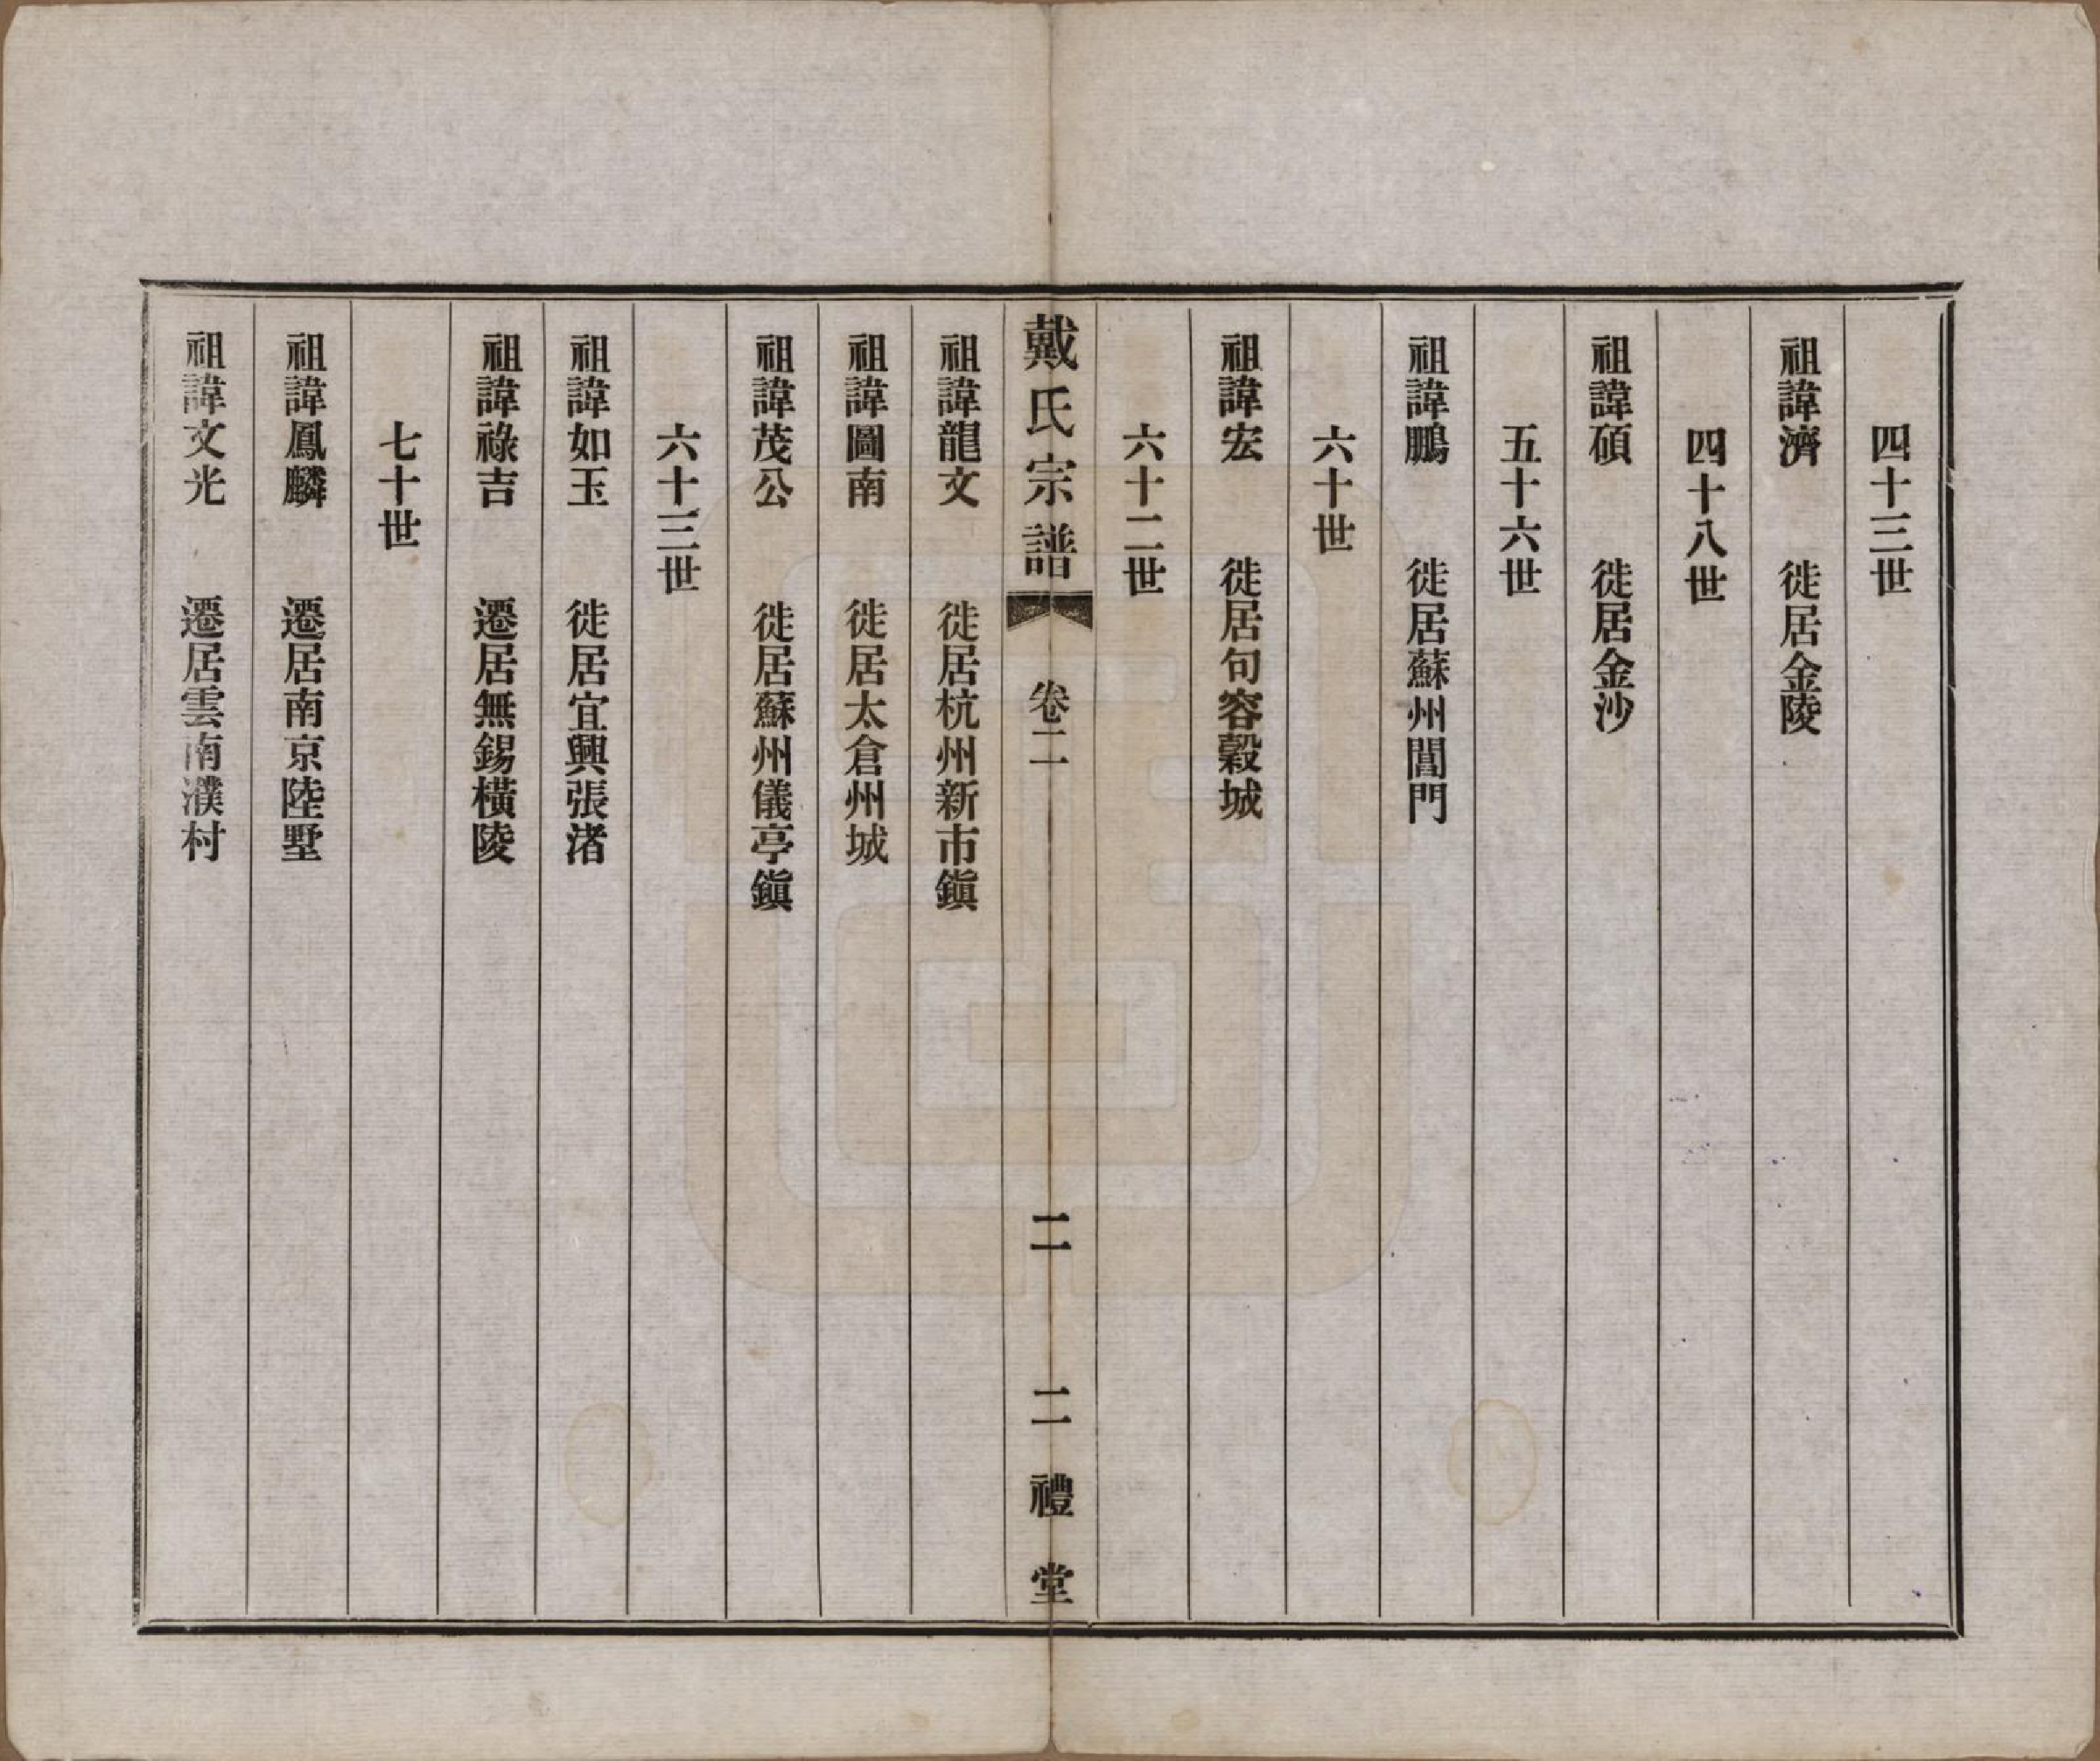 四十三世
祖諱濟　徙居金陵
四十八世
祖諱碩　徙居金沙
五十六世
祖諱鵬　徙居蘇州閶門
六十世
祖諱宏　徙居句容穀城
六十二世
戴氏宗譜　卷二　二　二禮堂
祖諱龍文　徙居杭州新市鎭
祖諱圖南　徙居太倉州城
祖諱茂公　徙居蘇州儀亭鎭
六十三世
祖諱如玉　徙居宜興張渚
祖諱祿吉　遷居無錫橫陵
七十世
祖諱鳳麟　遷居南京陸墅
祖諱文光　遷居雲南濮村